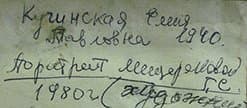 Кучинская Емия
Павловна 1940.
Портрет мищеряковой
ГС
1980г (художник